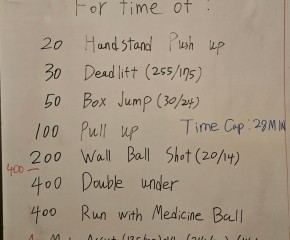 For time of :
20 Handstand Push up
30 Deadlift (255/175)
50 Box Jump (30/24)
100 Pull up Time Cap: 28MIN
200 Wall Ball Shot (20/14)
400
400 Double under
400 Run with Medicine Ball